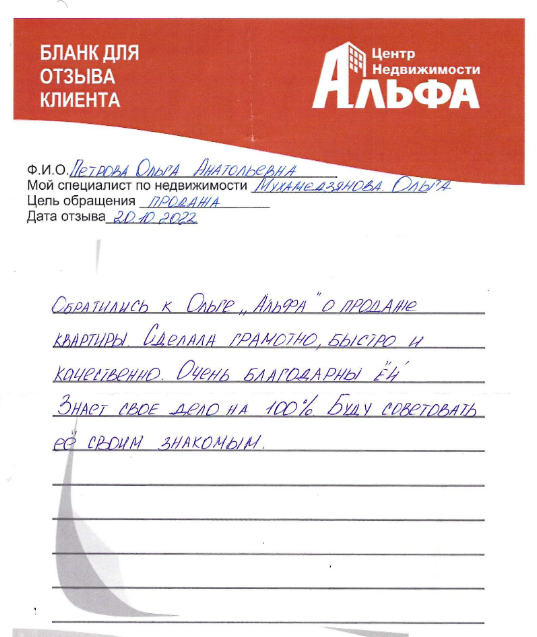 БЛАНК ДЛЯ
ОТЗЫВА
КЛИЕНТА
Центр
Недвижимости
АЛЬФА
Ф.И.О. Петрова Ольга Анатольевна
Мой специалист по недвижимости Мухамедзянова Ольга
Цель обращения продажа
Дата отзыва 20.10.2022
Обратились к Ольге „Альфа" о продаже
квартиры. Сделала грамотно, быстро и
качественно. Очень благодарны ей
Знает свое дело на 100%. Буду советовать
её своим знакомым.